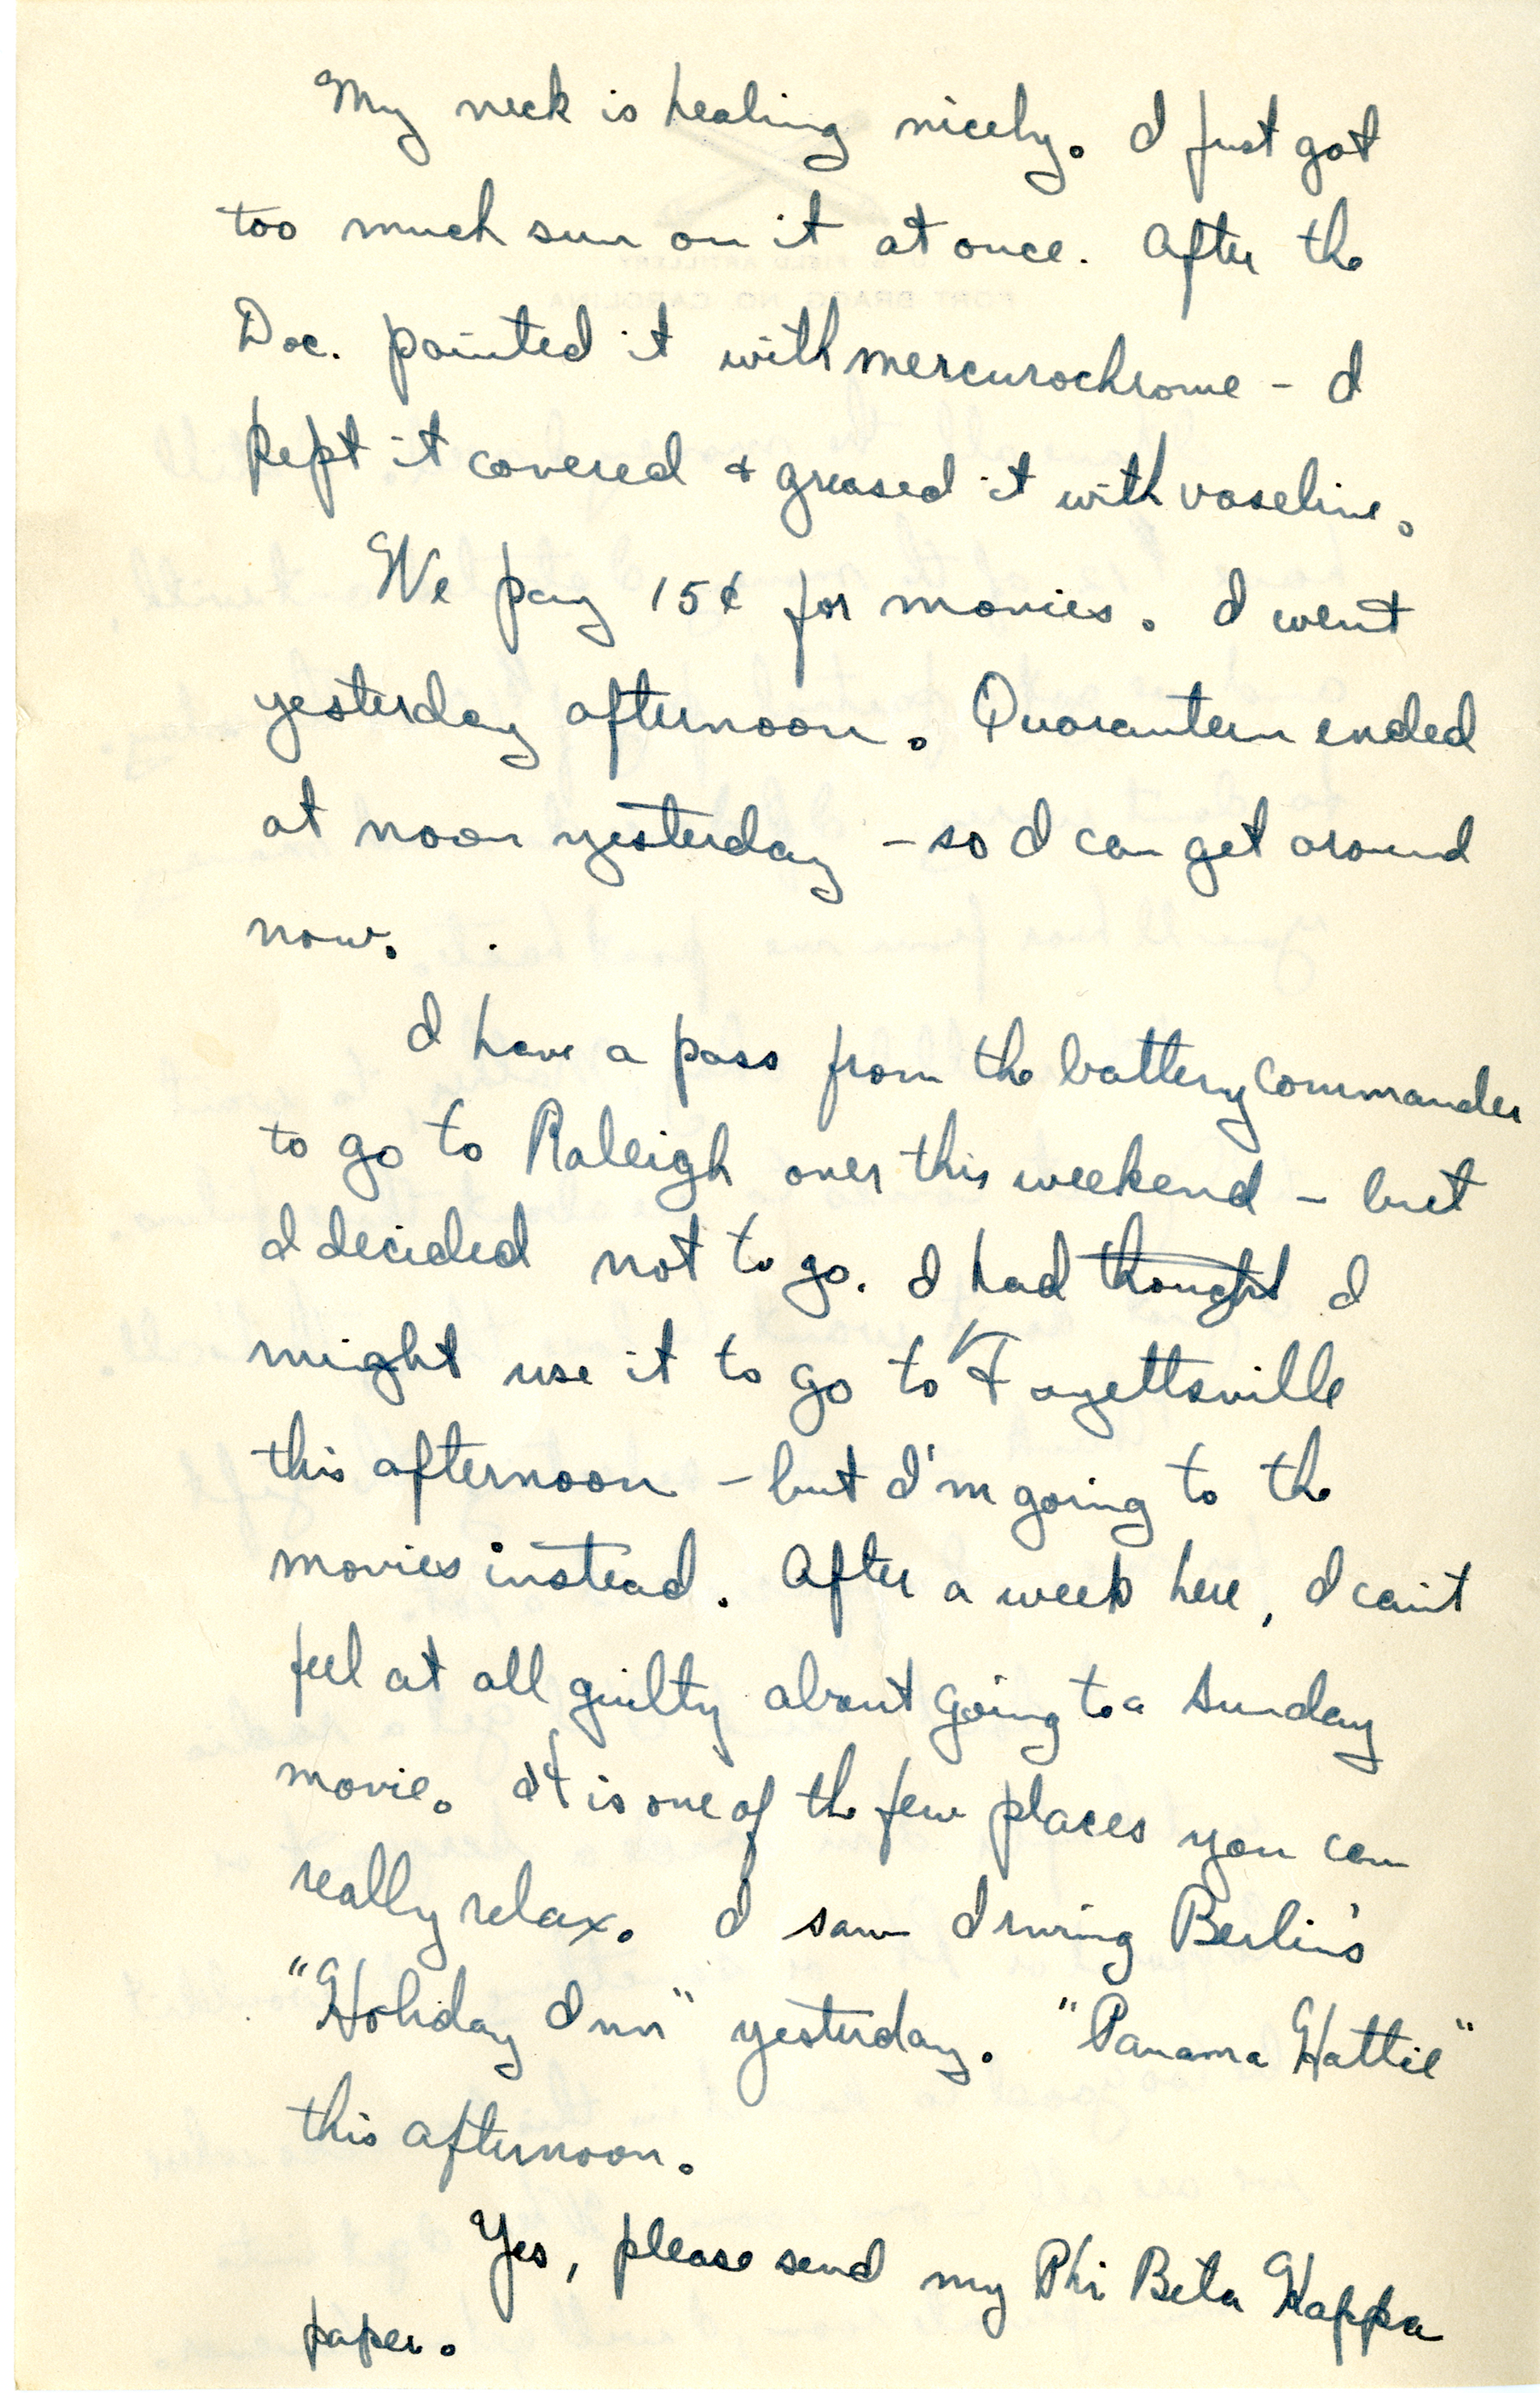 My neck is healing nicely. I just got
too much sun on it at once. After the
Doc. painted it with mercurochrome - I
kept it covered + greased it with vaseline.
We pay 15¢ for movies. I went
yesterday afternoon. Quarantein ended
at noon yesterday - so I can get around
now.
I have a pass from the battery commander
to go to Raleigh over this weekend - but
I decided not to go. I had thought I
might use it to go to Fayettsville
this afternoon - but I'm going to the
movies instead. After a week here, I can't
feel at all guilty about going to a Sunday
movie. It is one of the few places you can
really relax. I saw Irving Berlin's
"Holiday Inn" yesterday. "Panama Hattie"
this afternoon.
Yes, please send my Phi Beta Kappa
paper.